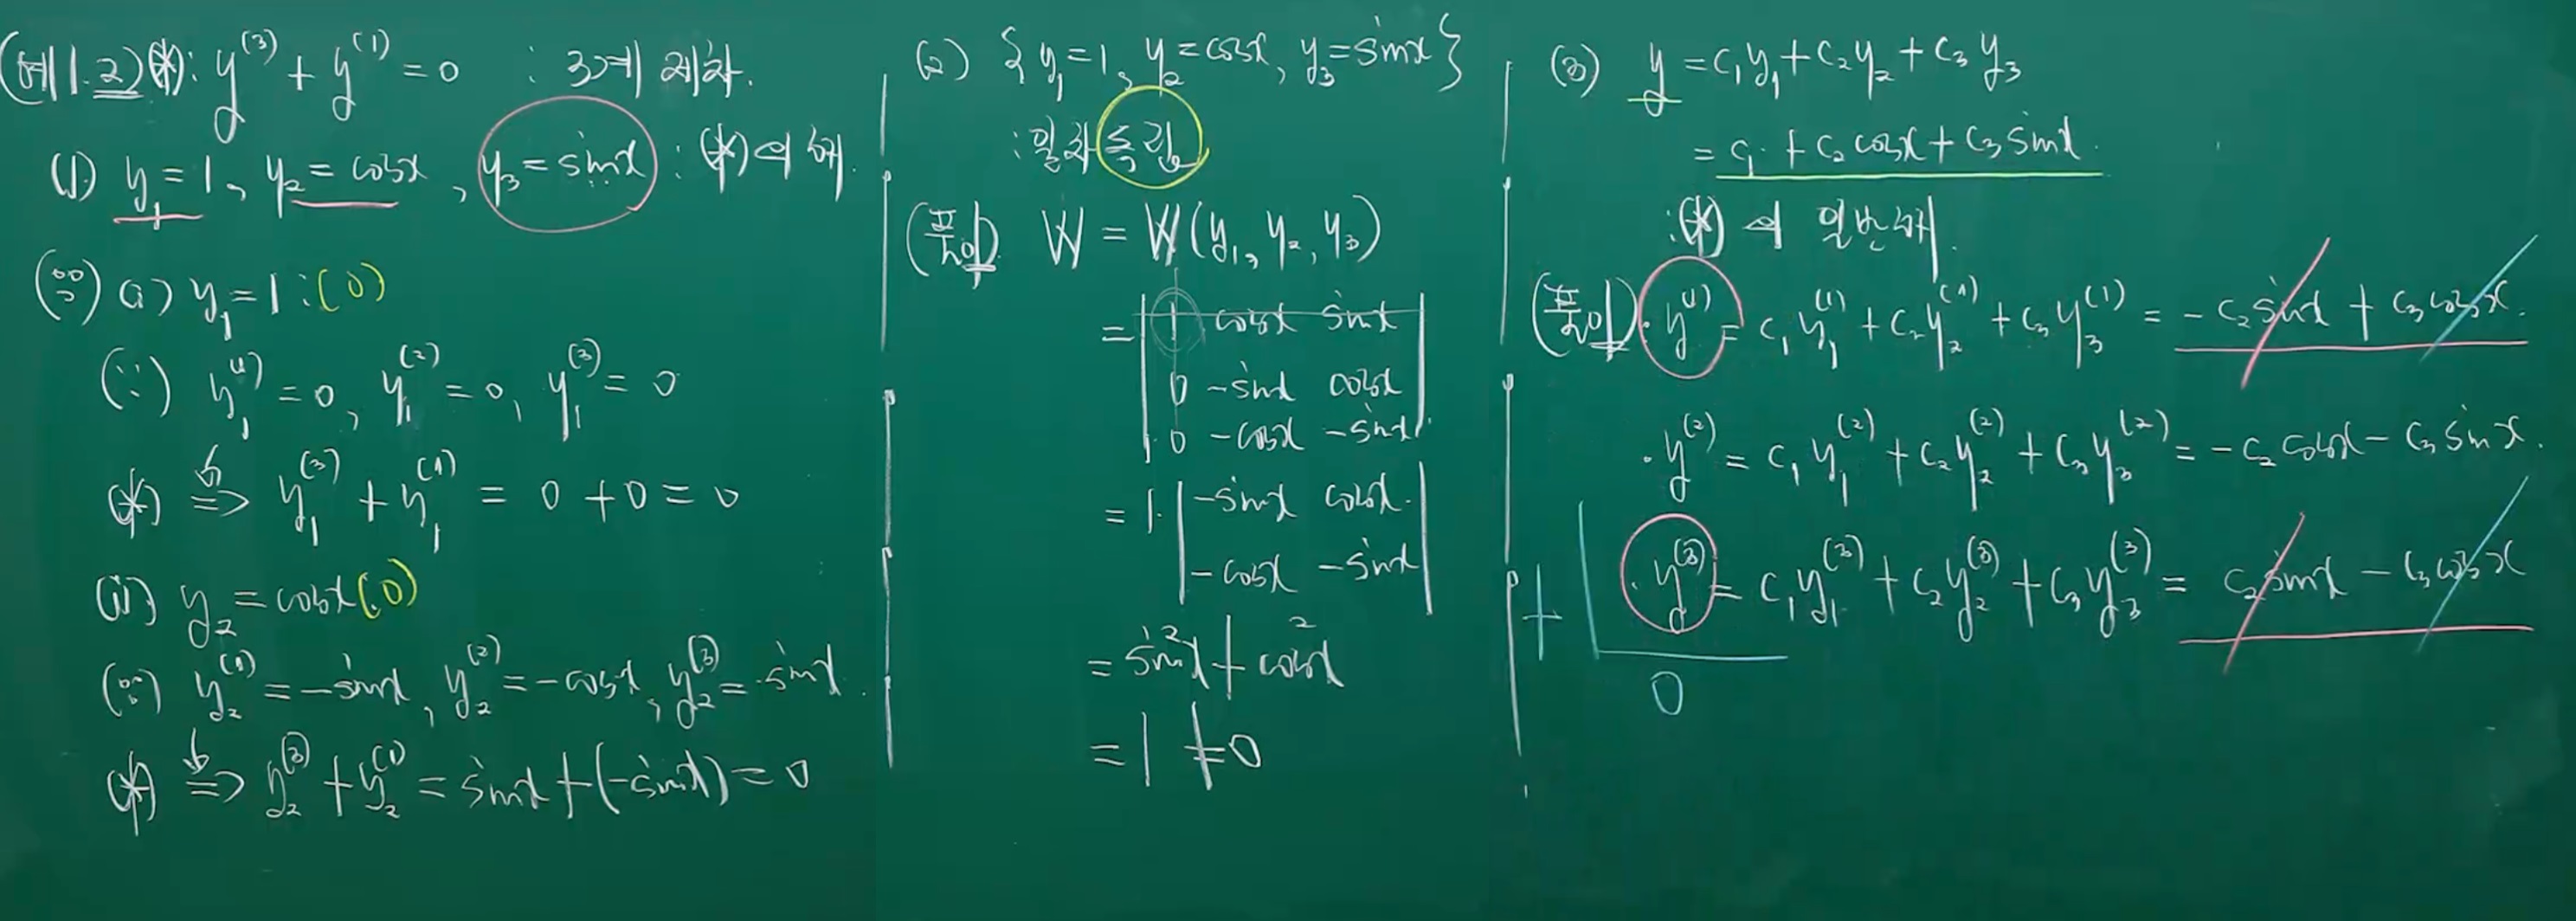 (예 1.2) (*): y^(3) + y^(1) = 0 : 3계 제차.
(1) y₁ = 1, y₂ = cosx, y₃ = sinx : (*)의 해.
(∵) (i) y₁ = 1 : (0)
(∵) y₁^(1) = 0, y₁^(2) = 0, y₁^(3) = 0
(*) ⇒ y₁^(3) + y₁^(1) = 0 + 0 = 0
(ii) y₂ = cosx (0)
(∵) y₂^(1) = -sinx, y₂^(2) = -cosx, y₂^(3) = sinx.
(*) ⇒ y₂^(3) + y₂^(1) = sinx + (-sinx) = 0
(2) { y₁ = 1, y₂ = cosx, y₃ = sinx }
: 일차독립
(풀이) W = W(y₁, y₂, y₃)
= | 1 cosx sinx
0 -sinx cosx
0 -cosx -sinx |
= 1· | -sinx cosx
-cosx -sinx |
= sin²x + cos²x
= 1 ≠ 0
(3) y = c₁y₁ + c₂y₂ + c₃y₃
= c₁ + c₂cosx + c₃sinx
: (*)의 일반해.
(풀이) · y^(1) = c₁y₁^(1) + c₂y₂^(1) + c₃y₃^(1) = -c₂sinx + c₃cosx.
· y^(2) = c₁y₁^(2) + c₂y₂^(2) + c₃y₃^(2) = -c₂cosx - c₃sinx.
+ · y^(3) = c₁y₁^(3) + c₂y₂^(3) + c₃y₃^(3) = c₂sinx - c₃cosx
0